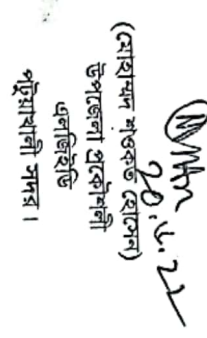 ২০.৬.২২
(মোহাম্মদ শওকত হোসেন)
উপজেলা প্রকৌশলী
এলজিইডি
পটুয়াখালী সদর।